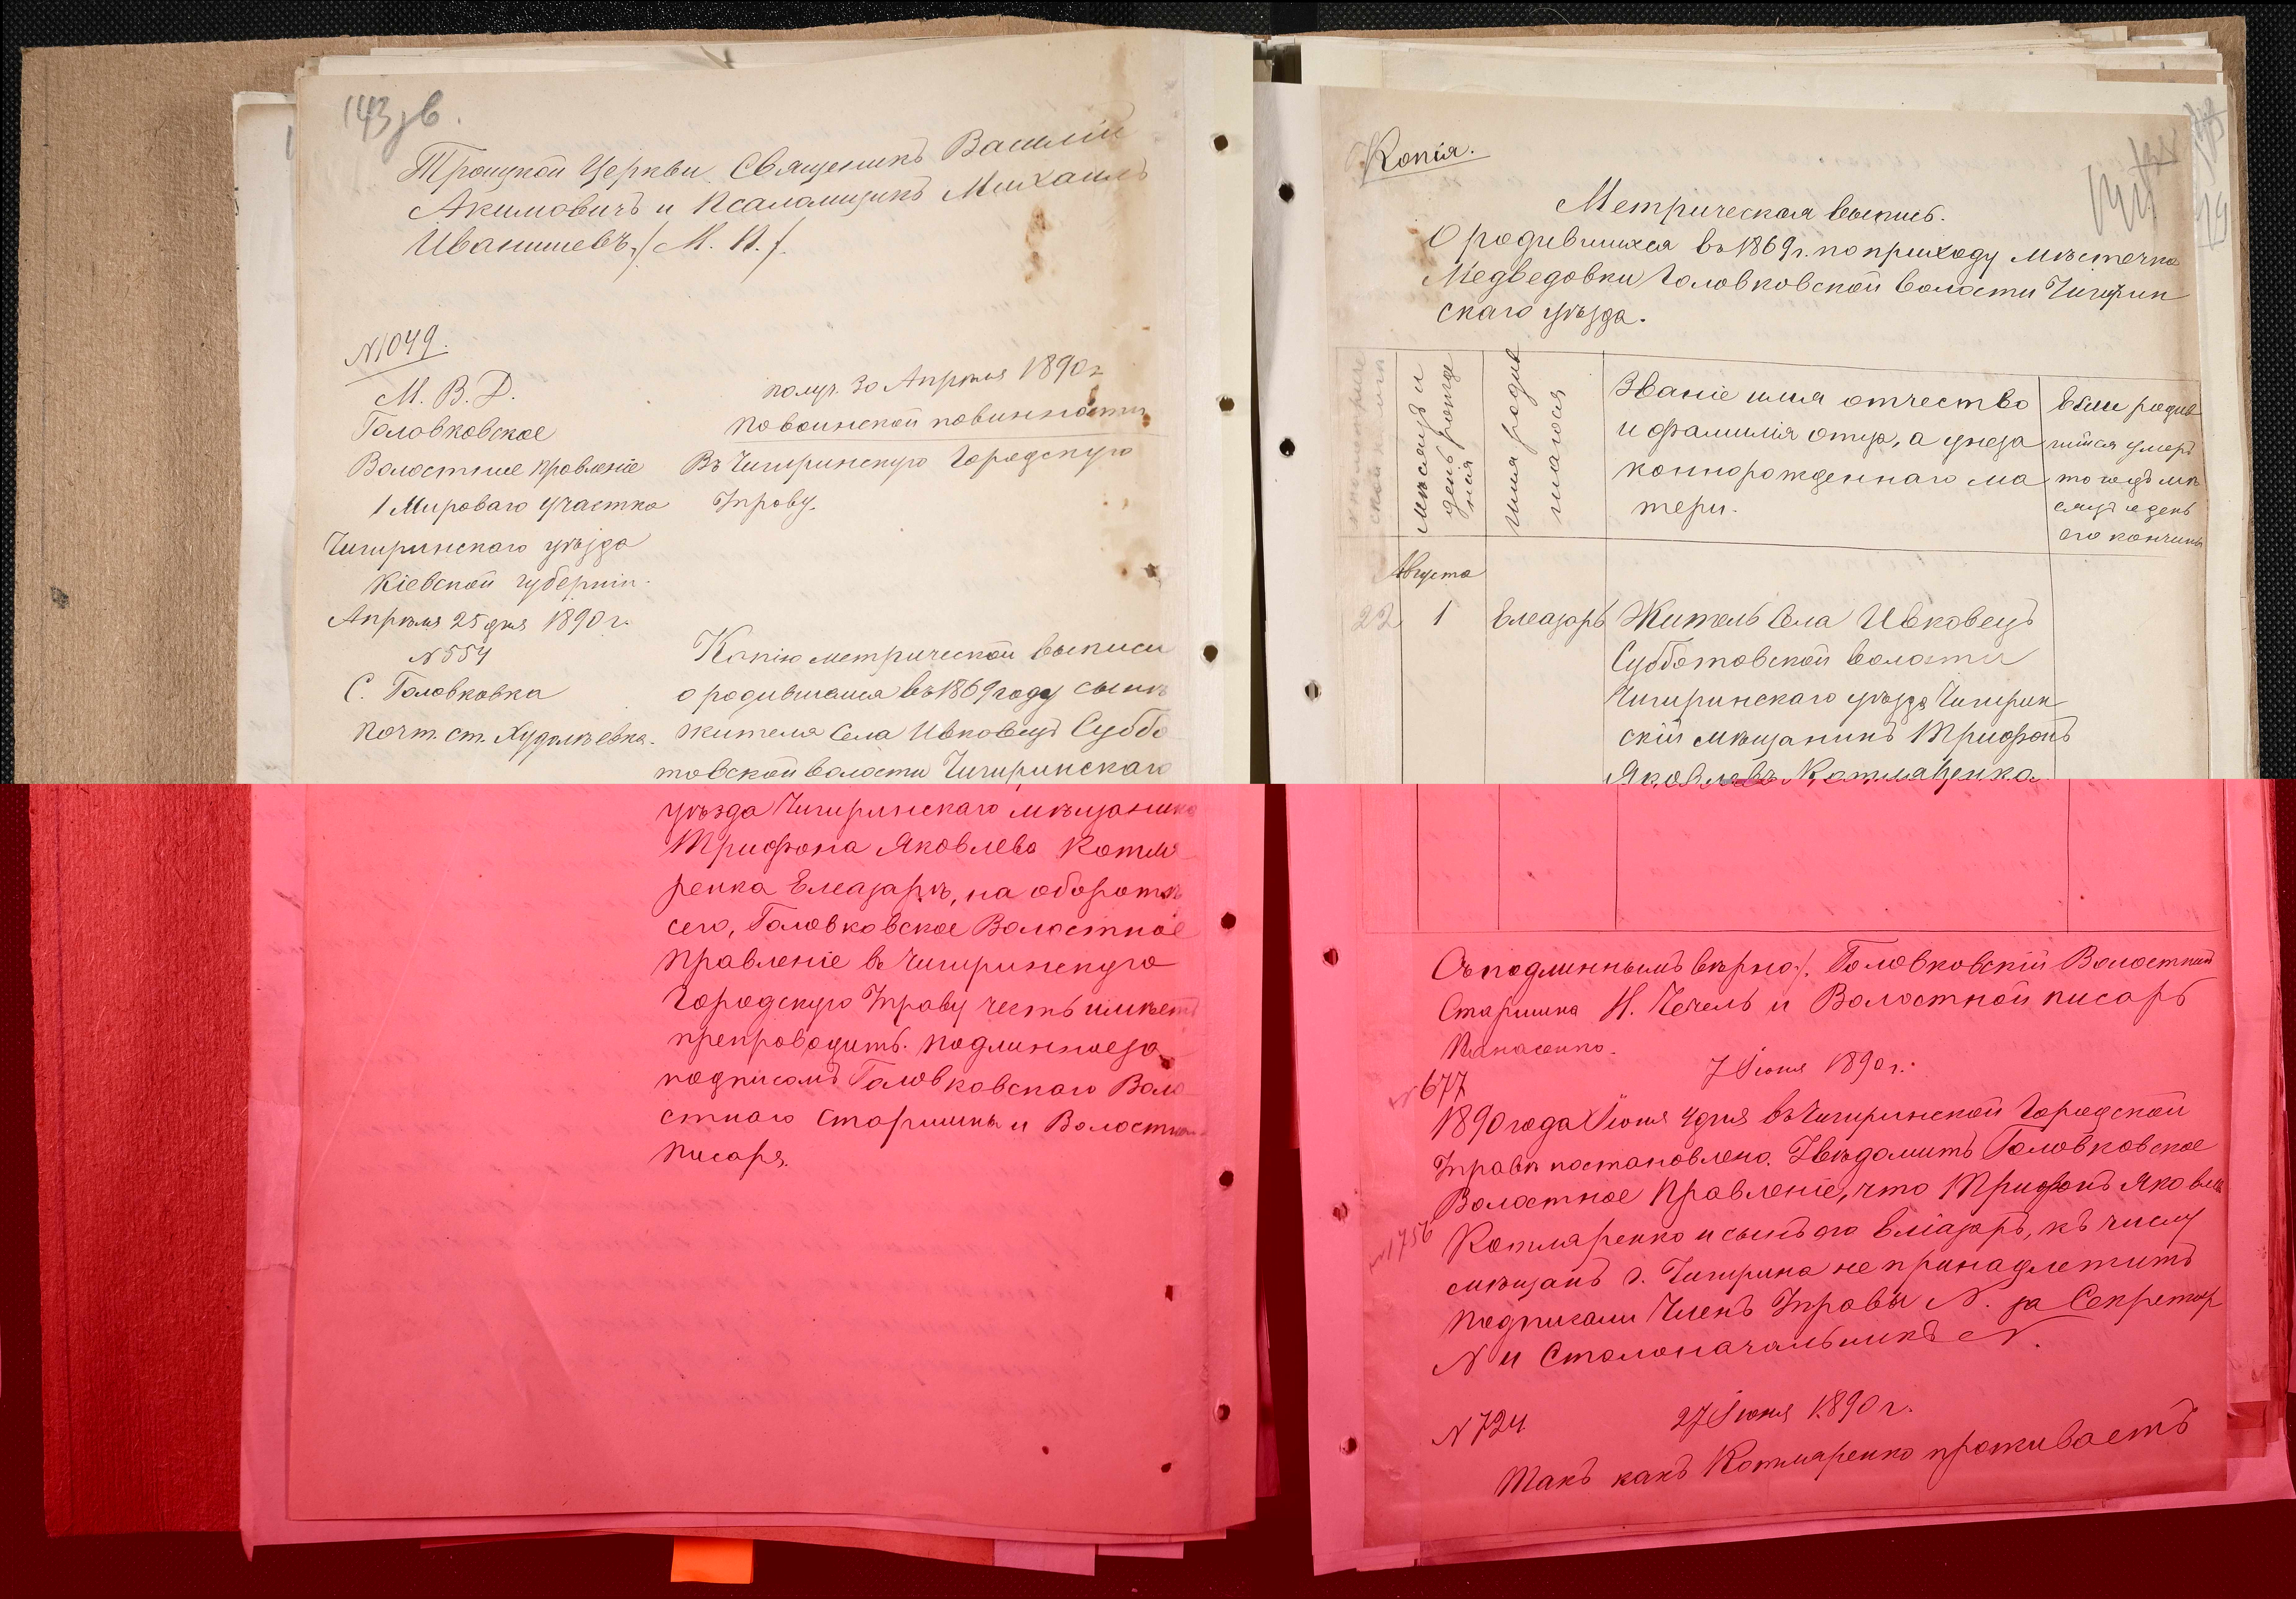 143 зв.
Троицкой Церкви Священикъ Василій
Акимовичъ и Псаломщикъ Михаилъ
Иванишевъ./ М. П./.
№1049.
М. В. Д.
Головковское
Волостное Правленіе
1 Мироваго Участка
Чигиринскаго уѣзда
Кіевской губерніи.
Апрѣля 25 дня 1890 г.
№554
С. Головковка
почт. ст. Худолѣевка.
получ. 30 Апрѣля 1890 г
по воинской повинности
Въ Чигиринскую Городскую
Управу.
Копію метрической выписи
о родившемся въ 1869 году сынѣ
жителя села Ивковецъ Суббо
товской волости Чигиринскаго
уѣзда Чигиринскаго мѣщанина
Трифона Яковлева Котля-
ренка Елеазарѣ, на оборотѣ
сего, Головковское Волостное
Правленіе въ Чигиринскую
Городскую Управу честь имѣетъ
препроводить. Подлинное за
подписомъ Головковскаго Воло-
стнаго Старшины и Волостнаго
Писаря.
Копія.
Метрическая выпись.
О родившихся въ 1869 г. по приходу мѣстечка
Медведовки Головковской волости Чигирин
скаго уѣзда.
Мѣсяцъ и
день рожде
нія
имя родив
шагося
Званіе имя отчество
и фамилія отца, а у неза
коннорожденнаго ма
тери.
Если родив
шійся умеръ
то годъ мѣ
сяцъ и день
его кончины
Августа
22
1
Елеазаръ
Житель села Ивковецъ
Субботовской волости
Чигиринскаго уѣзда Чигирин
скій мѣщанинъ Трифонъ
Яковлевъ Котляренко
Съ подлиннымъ вѣрно:/. Головковскій Волостный
Старшина Н. Чечель и Волостной писарь
Панасенко.
№677
7 Іюня 1890 г.
1890 года Іюня 4 дня въ Чигиринской Городской
Управѣ постановлено. Увѣдомить Головковское
Волостное Правленіе, что Трифонъ Яковлевъ
№1756
Котляренко и сынъ его Еліазаръ, къ числу
мѣщанъ г. Чигирина не принадлежитъ
Подписали Членъ Управы N. за Секретар
N и Столоначальникъ N.
№724
27 Іюня 1890 г.
Такъ какъ Котляренко проживаетъ